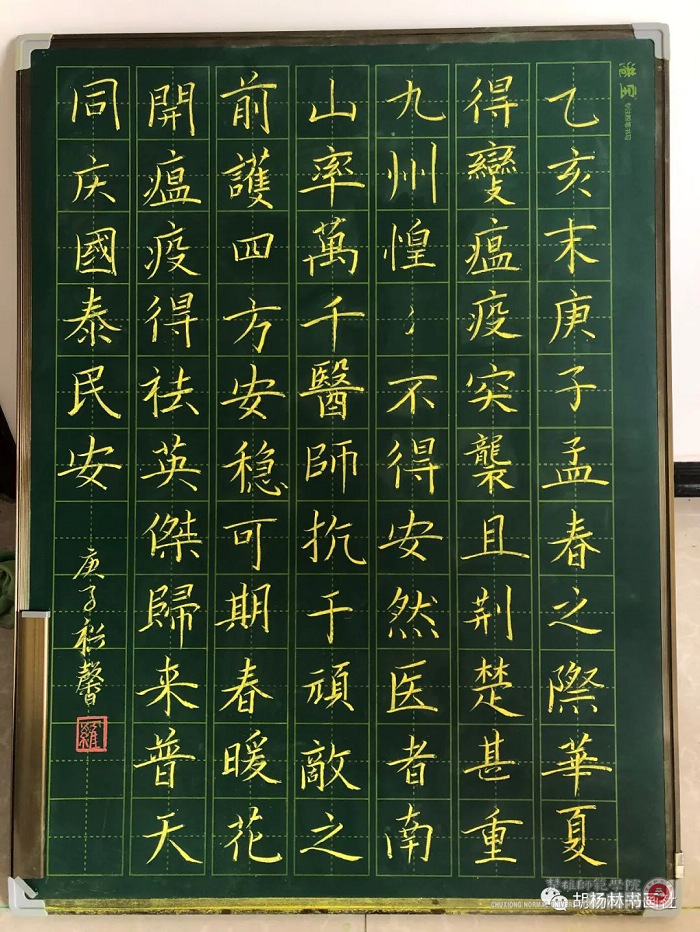 乙亥末庚子孟春之際華夏
得變瘟疫突襲且荆楚甚重
九州惶〻不得安然医者南
山率萬千醫師抗于頑敵之
前護四方安稳可期春暖花
開瘟疫得祛英傑歸来普天
同庆國泰民安
庚子
馨
羅
楚雄師範學院
CHUXIONG NORMAL UNIVERSITY
胡杨林书画社